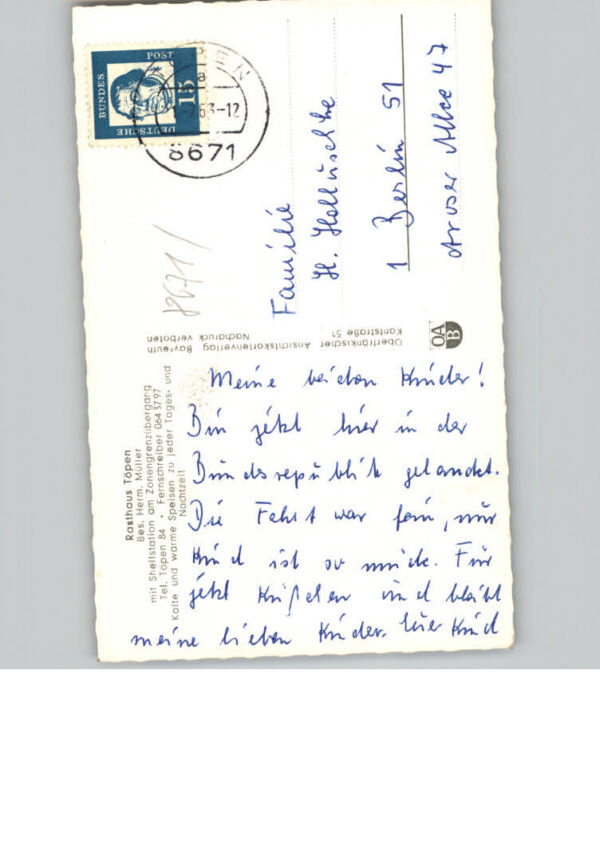 Rasthaus Töpen
Bes. Herm. Müller
mit Shellstation am Zonengrenzübergang
Tel. Töpen 84 • Fernschreiber 0643797
Kalte und warme Speisen zu jeder Tages- und
Nachtzeit
Meine beiden Kinder!
Bin jetzt hier in der
Bundesrepublik gelandet.
Die Fahrt war fein, nur
Kind ist so müde. Für
jetzt Küßchen und bleibt
meine lieben Kinder. Euer Kind
Oberfränkischer Ansichtskartenverlag Bayreuth
Kantstraße 51 Nachdruck verboten
OAB
8671/
DEUTSCHE
BUNDES
POST
15
a
63-12
8671
Familie
H.
1 Berlin 51
Aroser Allee 47